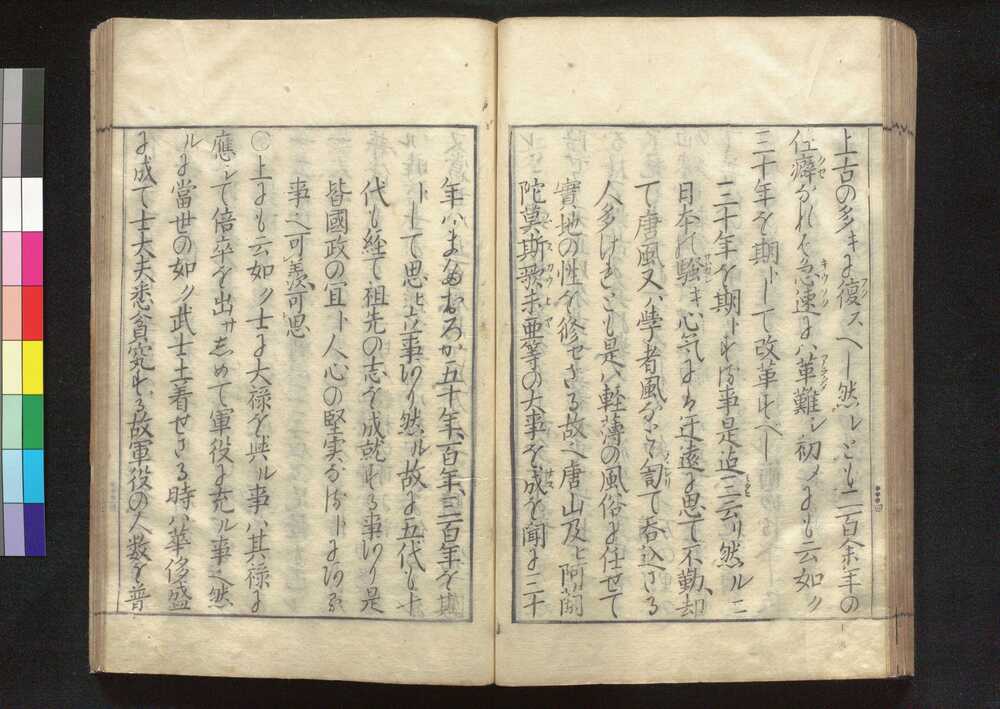 上古の多キに復スヘし然レとも二百余年の
仕癖なれは急速にハ革難シ初メにも云如ク
三十年を期トして改革すべし
三十年を期トする事是迄三云リ然ルニ
日本の騒キ心気よりは迂遠に思て不動、却
て唐風又ハ學者風など丶訇て呑込さる
人多けれとも是ハ軽薄の風俗に任せて
實地の性を修せさる故也唐山及ヒ阿蘭
陀莫斯歌未亜等の大事を成を聞に三十
年ハまなおろか五十年、百年、三百年を期
トして思ヒ立事あり然ル故に五代も十
代も経て祖先の志を成就する事あり是
皆國政の冝ト人心の堅実なるトにある
事也可羨可思
〇上にも云如ク士に大禄を與ル事ハ其禄に
應シて倍卒を出サしめて軍役に充ル事也然
ルに當世の如ク武士土着せさる時ハ華侈盛
に成て士大夫悉貧究す、故軍役の人数を普